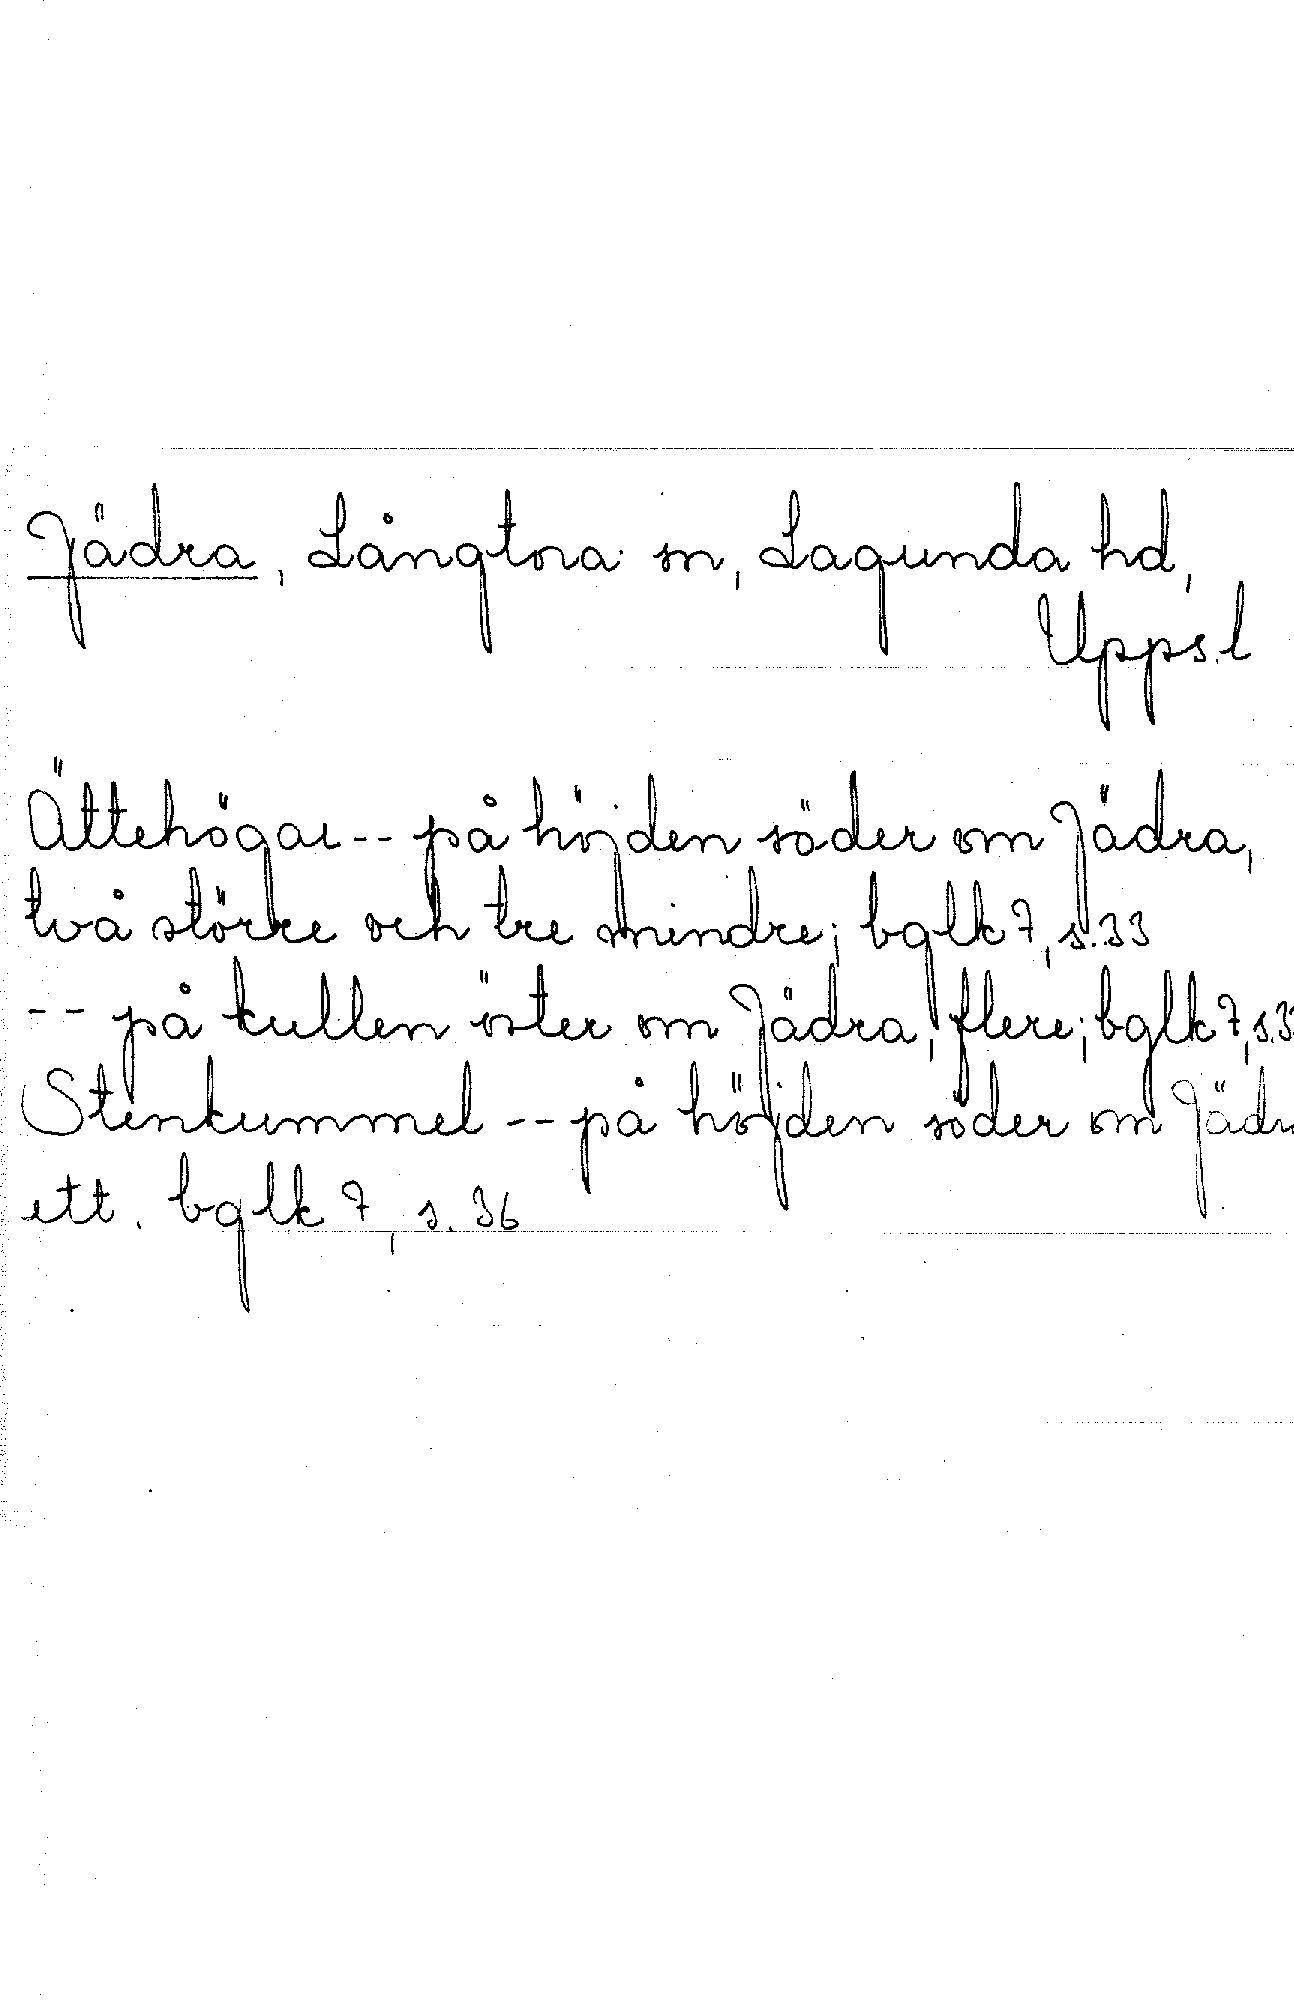 Jädra, Långtora sn, Lagunda hd,
Upps.l
Ättehögar -- på höjden söder om Jädra,
två större och tre mindre; bglk 7, s. 33
-- på kullen öster om Jädra, flere; bglk 7, s.3
Stenkummel -- på höjden söder om Jädr
ett. bglk 7, s. 36